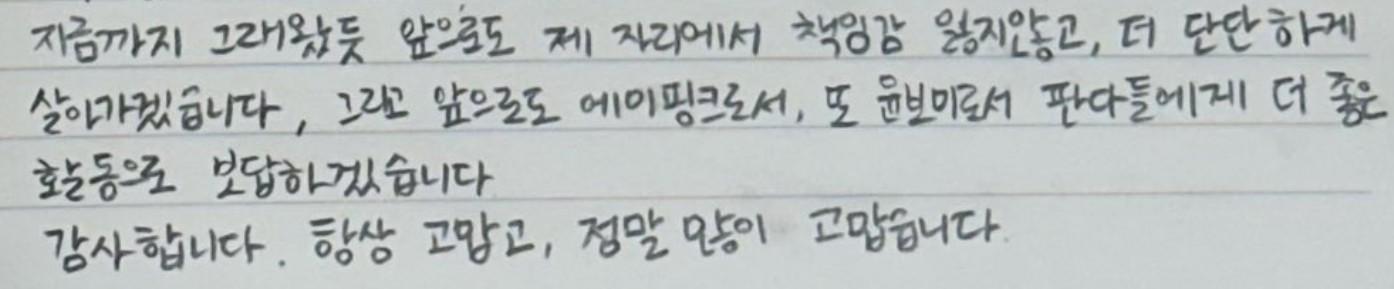 지금까지 그래왔듯 앞으로도 제 자리에서 책임감 잃지않고, 더 단단하게
살아가겠습니다, 그리고 앞으로도 에이핑크로서, 또 윤보미로서 판다들에게 더 좋은
활동으로 보답하겠습니다
감사합니다. 항상 고맙고, 정말 많이 고맙습니다.